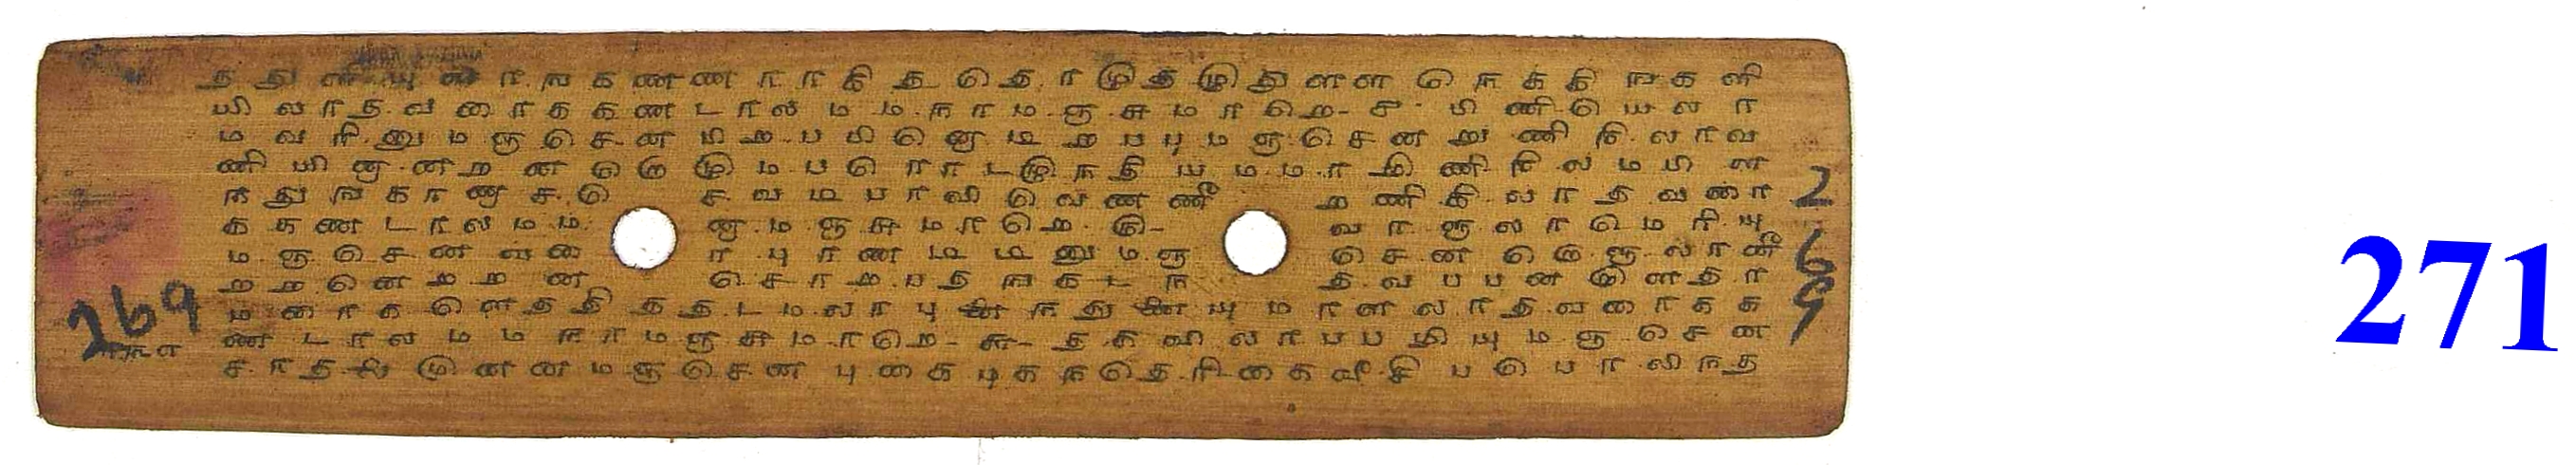 த து ளி யு ன ா ங க ண ண ா ா கி த தெ ா டு த டு து ள ள நெ க கி ங க ளி
யி லா த வ ரை க க ண டா ல ம ம நா ம ஞ சு மா றெ - ச பி ணி யெ லா
ம வ ரி னு ம ஞ செ ன பி ற ப பி னெ டி ற ப பு ம ஞ செ ன று ணி நி லா வ
ணி யி னா ன ற ன னொ டு ம ப ரொ ட டு ந தி ய ம ம ா மி ணி நி ல ம பி ள
ந து ங கா ண ச செ வ ம ப ா லி வெ ண ணீ ற ணி கி லா த வ ரை
க க ண டா ல ம ம னா ம ஞ சு மா றெ - ரு - வா ளு லா மெ ரி யு
ம ஞ செ ன வ ரை பு ர ண டி டி னு ம ஞ செ ன தொ ளு லா னீ
ற றெ ன ற ற ன சொ ற ப த ங க ட ந த வ ப ப ன மி ள த ா
ம ரை க ளெ த தி த த ட ம லா பு னை ந து னை யு மா ள லா த வ ரை க க
ண டா ல ம ம நா ம ஞ சு மா றெ - சு - த க வி லா ப ப ழி யு ம ஞ செ ன
சா த ல மு ன ன ம ஞ செ ன பு கை மு க ந தெ ரி கை வீ சி பொ லி ந த
269
2
6
9
271